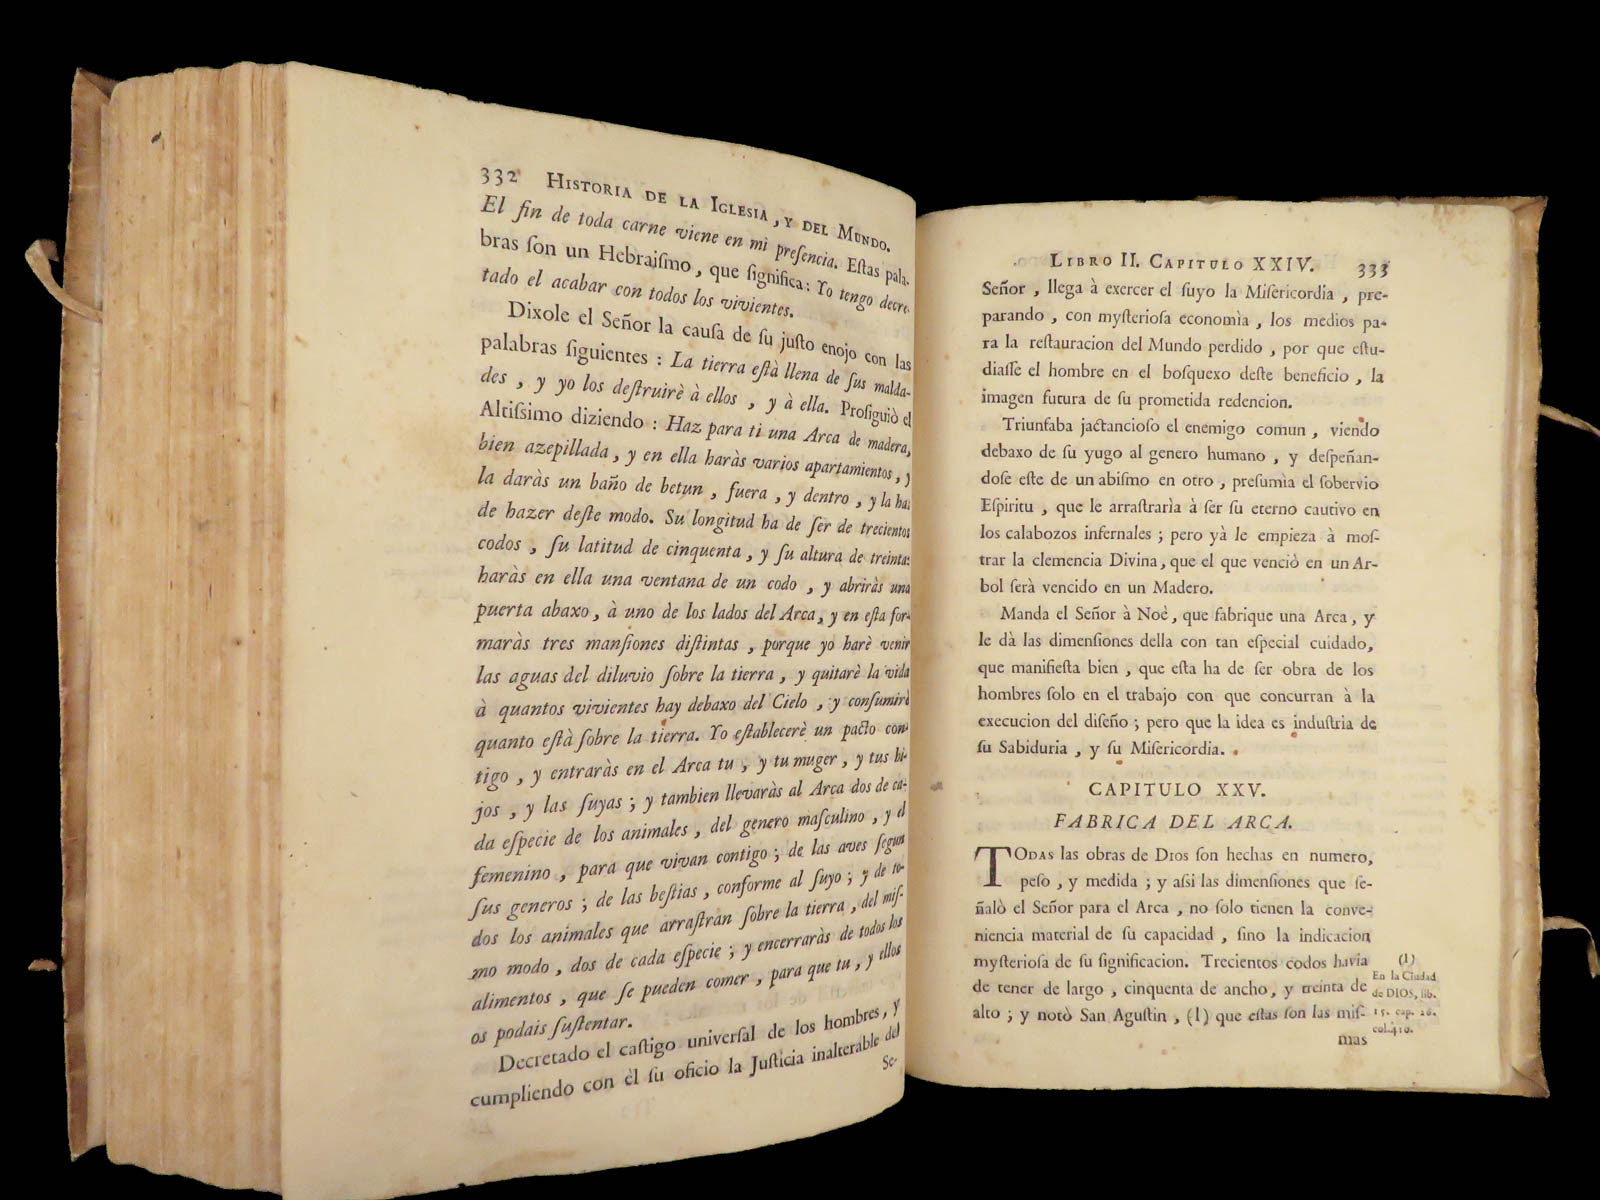 332 Historia de la Iglesia, y del Mundo.
El fin de toda carne viene en mi preſencia. Eſtas pala-
bras ſon un Hebraiſmo, que ſignifica: Yo tengo decre-
tado el acabar con todos los vivientes.
Dixole el Señor la cauſa de ſu juſto enojo con las
palabras ſiguientes : La tierra eſtà llena de ſus malda-
des , y yo los deſtruirè à ellos , y à ella. Proſiguiò el
Altiſsimo diziendo : Haz para ti una Arca de madera,
bien azepillada, y en ella haràs varios apartamientos, y
la daràs un baño de betun , fuera , y dentro , y la has
de hazer deſte modo. Su longitud ha de ſer de trecientos
codos , ſu latitud de cinquenta, y ſu altura de treinta:
haràs en ella una ventana de un codo , y abriràs una
puerta abaxo, à uno de los lados del Arca, y en eſta for-
maràs tres manſiones diſtintas , porque yo harè venir
las aguas del diluvio ſobre la tierra , y quitarè la vida
à quantos vivientes hay debaxo del Cielo , y conſumirè
quanto eſtà ſobre la tierra. Yo eſtablecerè un pacto con-
tigo , y entraràs en el Arca tu , y tu muger , y tus hi-
jos , y las ſuyas ; y tambien llevaràs al Arca dos de ca-
da eſpecie de los animales , del genero maſculino , y el
femenino , para que vivan contigo ; de las aves ſegun
ſus generos ; de las beſtias , conforme al ſuyo ; y de to-
dos los animales que arraſtran ſobre la tierra , del miſ-
mo modo , dos de cada eſpecie ; y encerraràs de todos los
alimentos , que ſe pueden comer , para que tu , y ellos
os podais ſuſtentar.
Decretado el caſtigo univerſal de los hombres, y
cumpliendo con èl ſu oficio la Juſticia inalterable del
Se-
Libro II. Capitulo XXIV. 333
Señor , llega à exercer el ſuyo la Miſericordia , pre-
parando , con myſterioſa economìa , los medios pa-
ra la reſtauracion del Mundo perdido , por que eſtu-
diaſſe el hombre en el boſquexo deſte beneficio , la
imagen futura de ſu prometida redencion.
Triunfaba jactancioſo el enemigo comun , viendo
debaxo de ſu yugo al genero humano , y deſpeñan-
doſe eſte de un abiſmo en otro , preſumìa el ſobervio
Eſpiritu , que le arraſtrarìa à ſer ſu eterno cautivo en
los calabozos infernales ; pero yà le empieza à moſ-
trar la clemencia Divina, que el que venciò en un Ar-
bol ſerà vencido en un Madero.
Manda el Señor à Noè, que fabrique una Arca, y
le dà las dimenſiones della con tan eſpecial cuidado,
que manifieſta bien , que eſta ha de ſer obra de los
hombres ſolo en el trabajo con que concurran à la
execucion del diſeño ; pero que la idea es induſtria de
ſu Sabiduria , y ſu Miſericordia.
CAPITULO XXV.
FABRICA DEL ARCA.
Todas las obras de Dios ſon hechas en numero,
peſo , y medida ; y aſsi las dimenſiones que ſe-
ñalò el Señor para el Arca , no ſolo tienen la conve-
niencia material de ſu capacidad , ſino la indicacion
myſterioſa de ſu ſignificacion. Trecientos codos havia
de tener de largo , cinquenta de ancho, y treinta de
alto ; y notò San Aguſtin , (1) que eſtas ſon las miſ-
mas
(1)
En la Ciudad
de DIOS, lib.
15. cap. 26.
col.410.